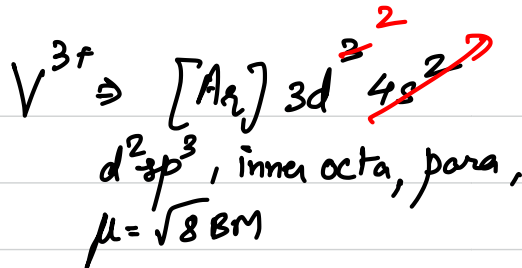 V³⁺ ⇒ [Ar] 3d³ ² 4s²
d²sp³, inner octa, para,
μ = √8 BM